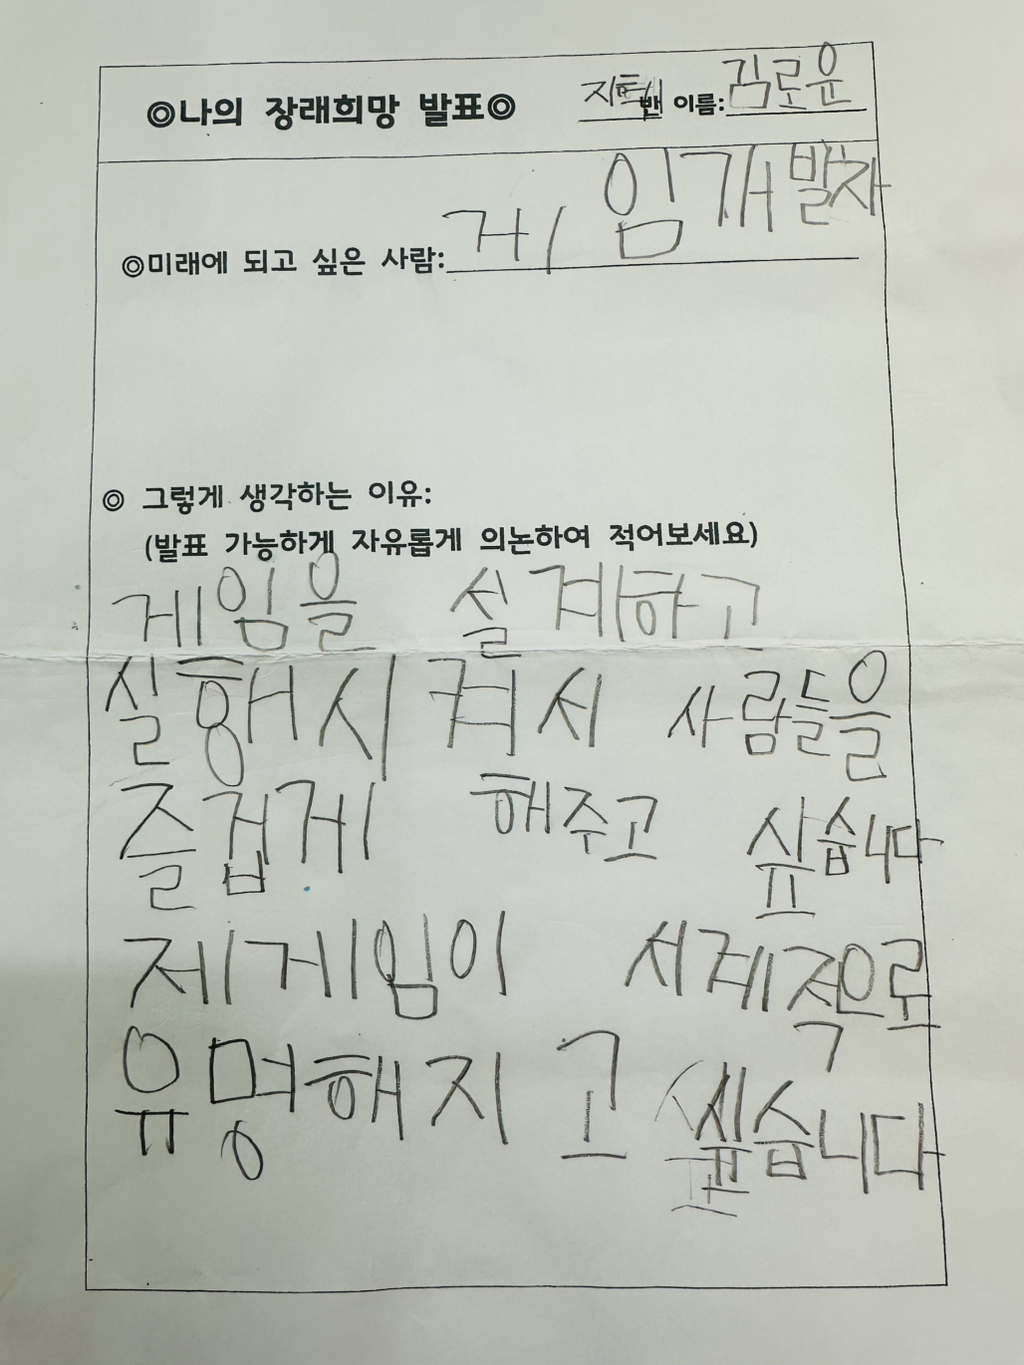 ◎나의 장래희망 발표◎ 지혜반 이름:김로윤
◎미래에 되고 싶은 사람: 게임개발자
◎ 그렇게 생각하는 이유:
(발표 가능하게 자유롭게 의논하여 적어보세요)
게임을 설계하고
실행시켜서 사람들을
즐겁게 해주고 싶습니다
제게임이 세계적으로
유명해지고 싶습니다